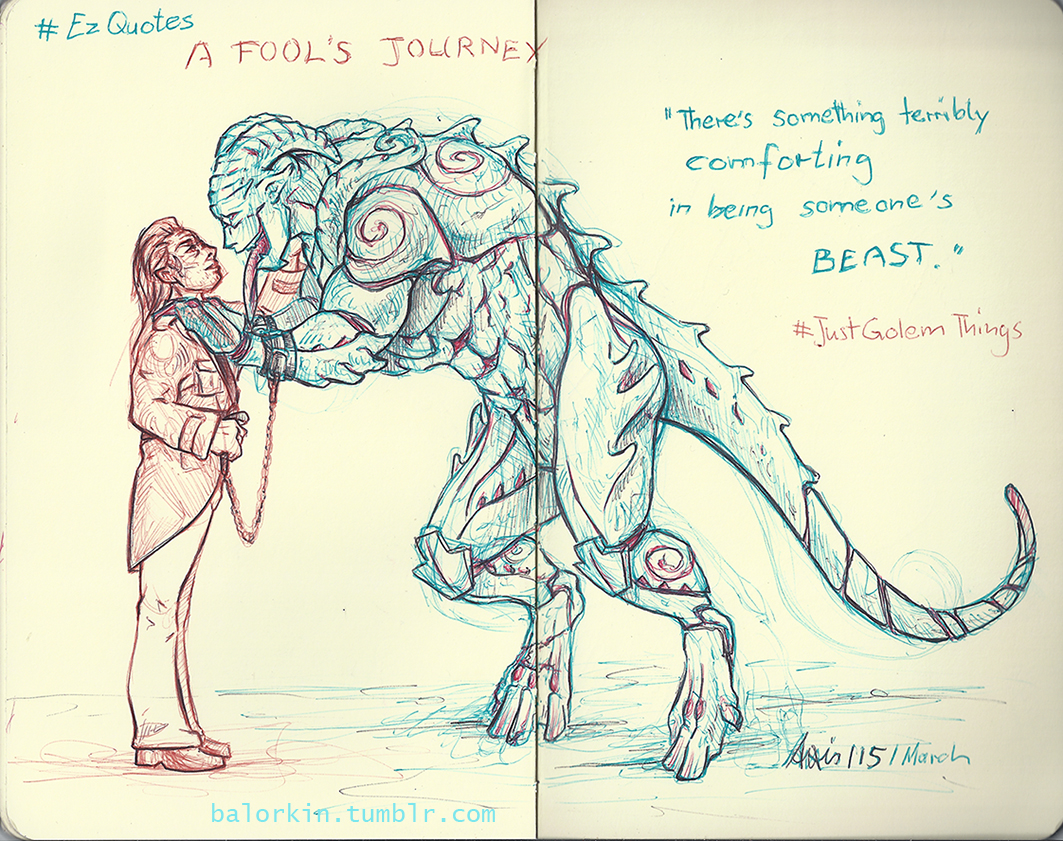 # Ez Quotes
A FOOL'S JOURNEY
"There's something terribly
comforting
in being someone's
BEAST."
#JustGolemThings
/15/March
balorkin.tumblr.com